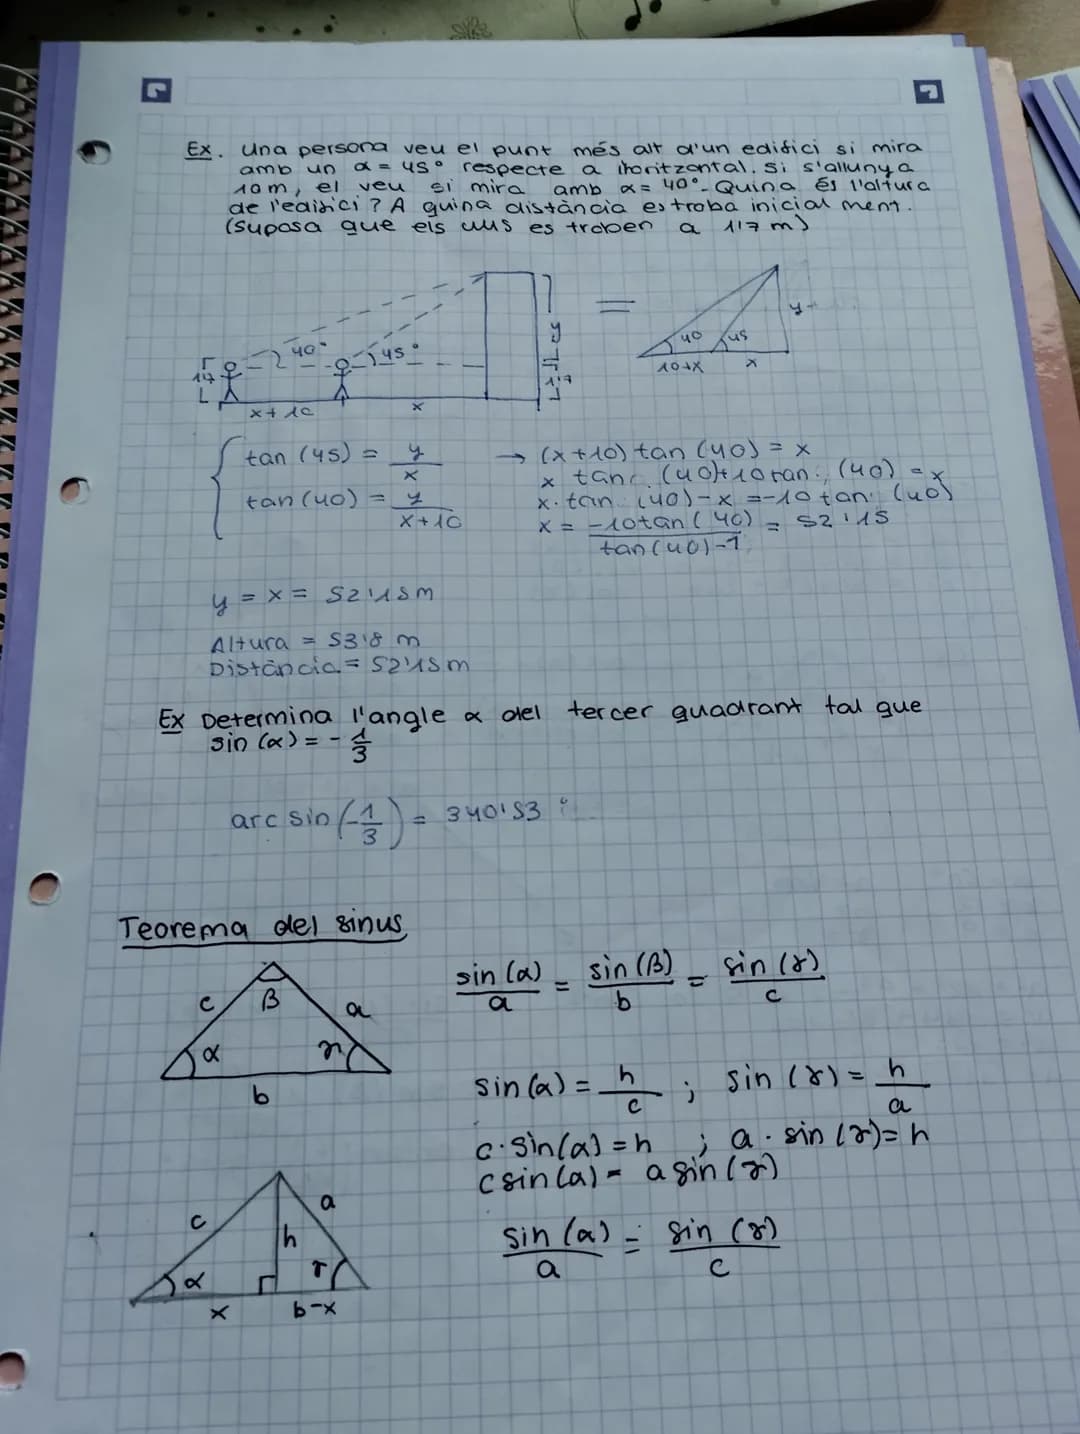 Ex. Una persona veu el punt més alt d'un edifici si mira
amb un α = 45° respecte a l'horitzontal. Si s'allunya
10m, el veu si mira amb α = 40°. Quina és l'altura
de l'edifici? A quina distància es troba inicialment.
(Suposa que els ulls es troben a 1'7m)
40°
45°
y
1'7
1'7
x+10
x
=
40
45
y
10+x
x
tan (45) = y/x → (x+10) tan (40) = x
x tan (40)+10 tan (40) = x
tan (40) = y/x+10
x·tan (40)-x = -10 tan (40)
x = -10tan(40)/tan(40)-1 = 52'15
y = x = 52'15m
Altura = 53'8 m
Distància = 52'15m
Ex Determina l'angle α del tercer quadrant tal que
sin (α) = - 1/3
arc sin (-1/3) = 340'53°
Teorema del sinus
c
β
a
α
γ
b
sin (α)/a = sin (β)/b = sin (γ)/c
sin (α) = h/c ; sin (γ) = h/a
c·sin(α) = h ; a · sin (γ) = h
c sin (α) = a sin (γ)
sin (α)/a = sin (γ)/c
c
a
h
α
γ
x
b-x